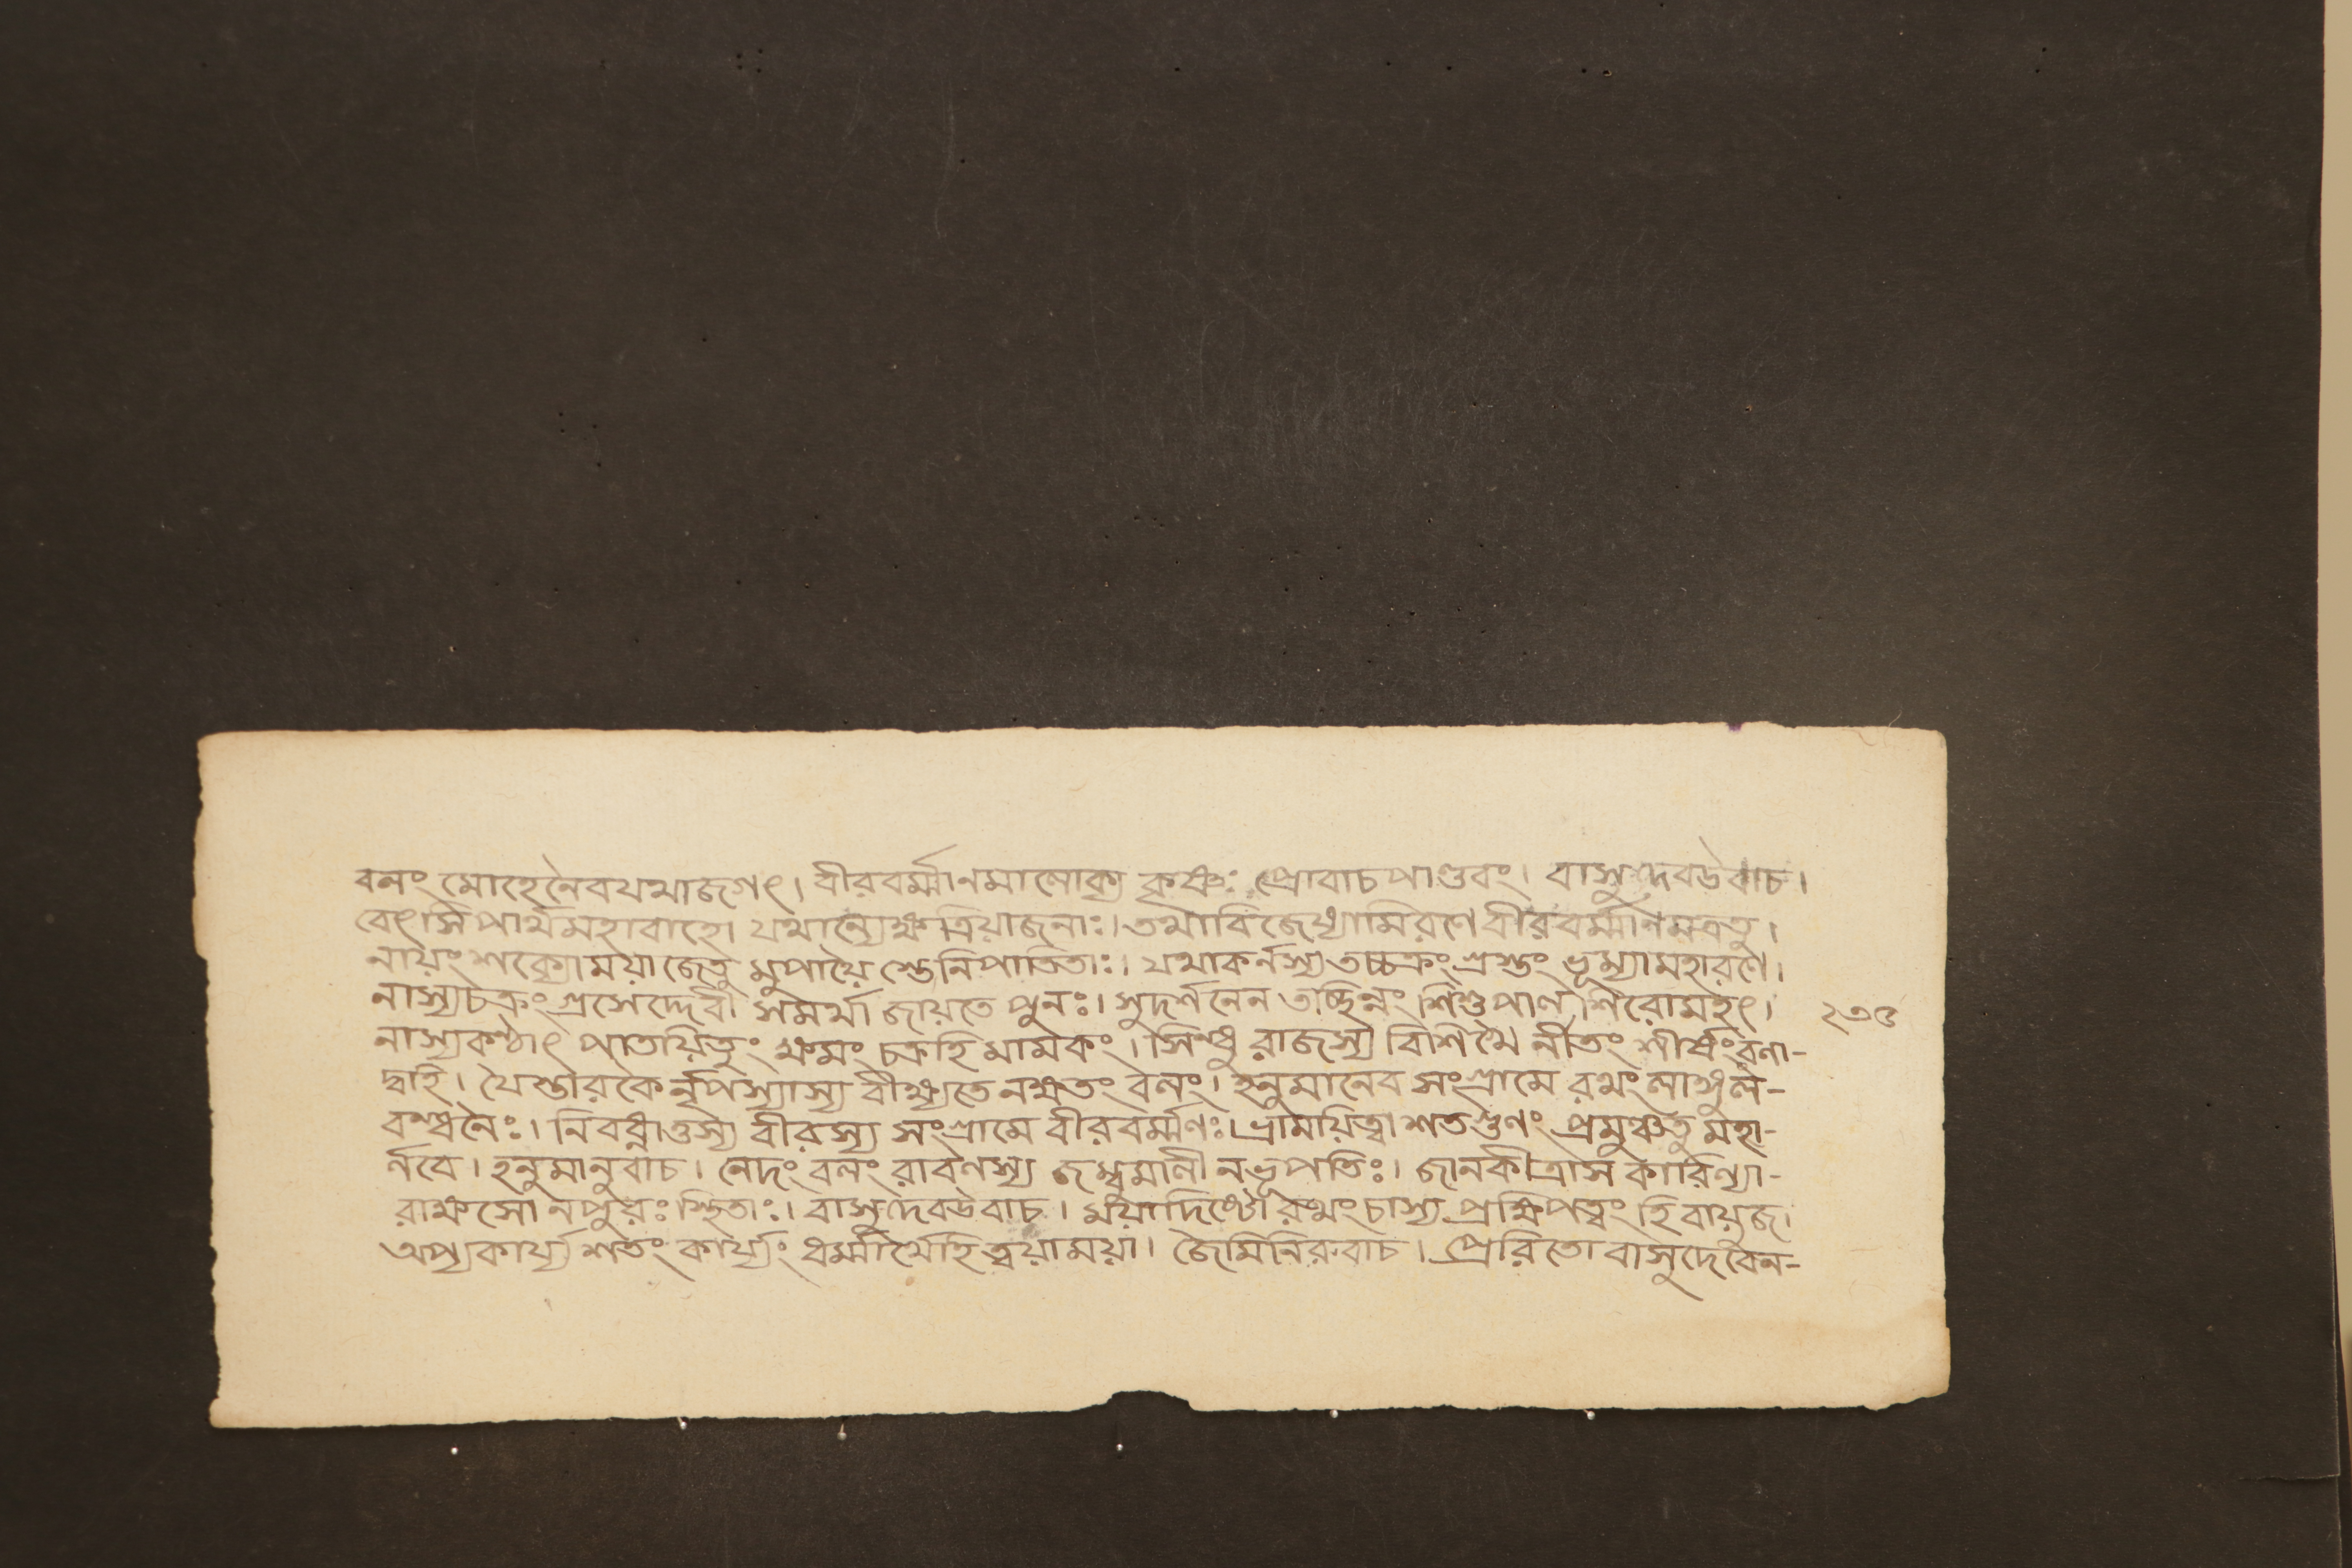 বলং মোহেনৈবযথাজগৎ। বীরবর্ম্মাণমালোক্য কৃষ্ণঃ প্রোবাচপাণ্ডবং। বাসুদেবউবাচ।
বেৎসিপার্থমহাবাহো যথান্যেক্ষত্রিয়াজনাঃ। তথাবিজেষ্যামিরণে বীরবর্ম্মাণমত্রতু।
নায়ংশক্যোময়াজেতু মুপায়ৈ স্তেনিপাতিতাঃ। যথাকর্নস্যতচ্চক্রং গ্রস্তং ভূম্যামহারণে।
নাস্যচক্রং গ্রসেদ্দেবী সমর্থা জায়তে পুনঃ। সুদর্শনেন তচ্ছিন্নং শিশুপাল শিরোমহৎ।
নাস্যকণ্ঠাৎ পাতয়িতুং ক্ষমং চক্রহি মামকং। সিন্ধু রাজস্য বিশিখৈ র্নীতং শীর্ষং বলা-
দ্বহি। থৈস্তারকৈ র্নৃপস্যাস্য বীক্ষ্যতে নক্ষতং বলং। হনুমানেব সংগ্রামে রথং লাঙ্গুল-
বন্ধনৈঃ। নিবধ্নাতুস্য বীরস্য সংগ্রামে বীরবর্ম্মণঃ। ভ্রাময়িত্বা শতগুণং প্রমুঞ্চতু মহা-
র্নবে। হনুমানুবাচ। নেদং বলং রাবণস্য জম্বুমালী নভূপতিঃ। জানকীত্রাস কারিণ্যা-
রাক্ষসো নপুরঃ স্থিতাঃ। বাসুদেবউবাচ। ময়াদিষ্টোরথং চাস্য প্রক্ষিপত্বং হি বায়ুজ।
অপ্যকার্য্য শতং কার্য্যং ধর্ম্মার্থেহি ত্বয়াময়া। জৈমিনিরুবাচ। প্রেরিতো বাসুদেবেন-
২৩৫